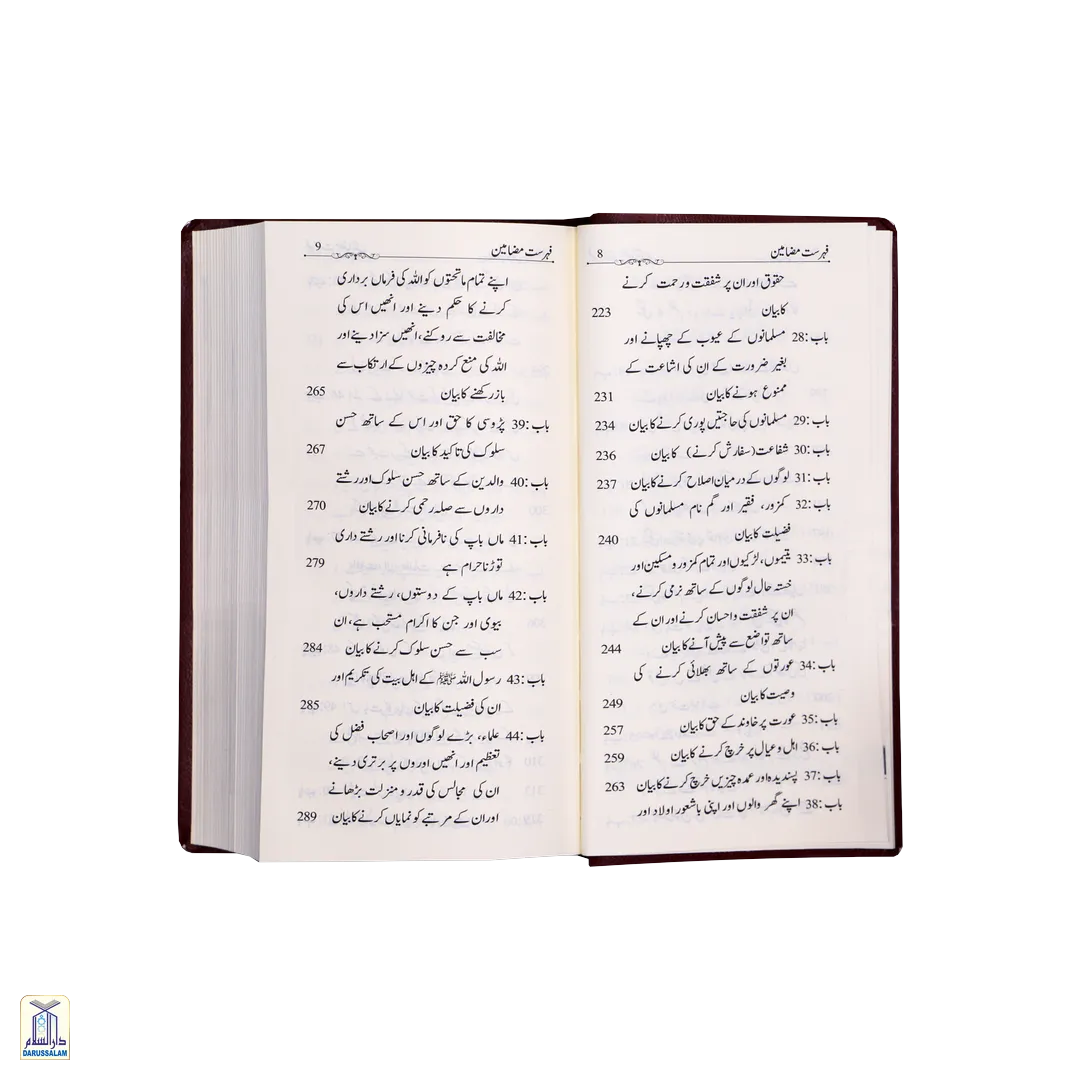 فہرست مضامین 8
حقوق اور ان پر شفقت ورحمت کرنے
کا بیان 223
باب:28 مسلمانوں کے عیوب کے چھپانے اور
بغیر ضرورت کے ان کی اشاعت کے
ممنوع ہونے کا بیان 231
باب:29 مسلمانوں کی حاجتیں پوری کرنے کا بیان 234
باب:30 شفاعت (سفارش کرنے) کا بیان 236
باب:31 لوگوں کے درمیان اصلاح کرنے کا بیان 237
باب:32 کمزور، فقیر اور گم نام مسلمانوں کی
فضیلت کا بیان 240
باب:33 یتیموں، لڑکیوں اور تمام کمزور و مسکین اور
خستہ حال لوگوں کے ساتھ نرمی کرنے،
ان پر شفقت و احسان کرنے اور ان کے
ساتھ تواضع سے پیش آنے کا بیان 244
باب:34 عورتوں کے ساتھ بھلائی کرنے کی
وصیت کا بیان 249
باب:35 عورت پر خاوند کے حق کا بیان 257
باب:36 اہل و عیال پر خرچ کرنے کا بیان 259
باب:37 پسندیدہ اور عمدہ چیزیں خرچ کرنے کا بیان 263
باب:38 اپنے گھر والوں اور اپنی باشعور اولاد اور
فہرست مضامین 9
اپنے تمام ماتحتوں کو اللہ کی فرماں برداری
کرنے کا حکم دینے اور انھیں اس کی
مخالفت سے روکنے، انھیں سزا دینے اور
اللہ کی منع کردہ چیزوں کے ارتکاب سے
باز رکھنے کا بیان 265
باب:39 پڑوسی کا حق اور اس کے ساتھ حسن
سلوک کی تاکید کا بیان 267
باب:40 والدین کے ساتھ حسن سلوک اور رشتے
داروں سے صلہ رحمی کرنے کا بیان 270
باب:41 ماں باپ کی نافرمانی کرنا اور رشتے داری
توڑنا حرام ہے 279
باب:42 ماں باپ کے دوستوں، رشتے داروں،
بیوی اور جن کا اکرام مستحب ہے، ان
سب سے حسن سلوک کرنے کا بیان 284
باب:43 رسول اللہ ﷺ کے اہل بیت کی تکریم اور
ان کی فضیلت کا بیان 285
باب:44 علماء، بڑے لوگوں اور اصحاب فضل کی
تعظیم اور انھیں اوروں پر برتری دینے،
ان کی مجالس کی قدر و منزلت بڑھانے
اور ان کے مرتبے کو نمایاں کرنے کا بیان 289
دارالسلام
DARUSSALAM